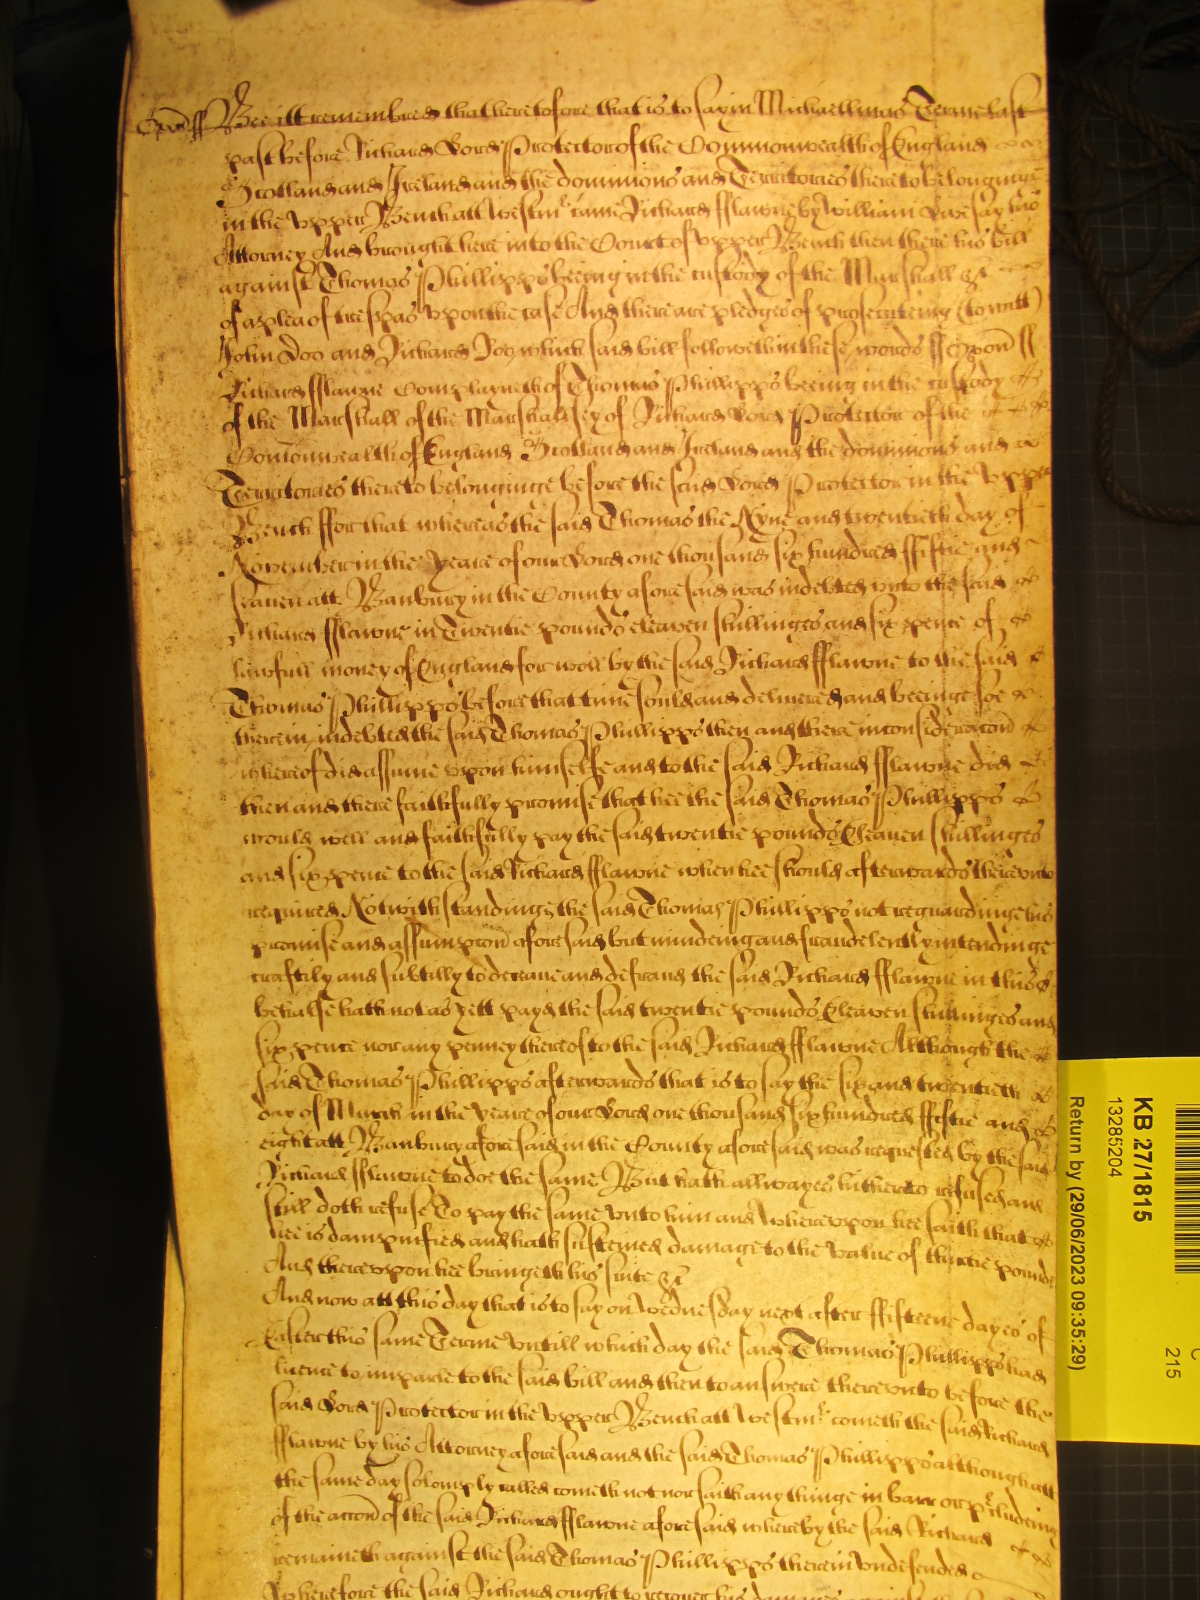 Oxon ss Bee itt remembred that heretofore that is to say in Michaellmas Terme last
past before Richard Lord Protector of the Commonwealth of England
Scotland and Ireland and the dominions and Territories thereto belonginge
in the Upper Bench att Westmr came Richard fflawne by William Lovesay his
Attorney And brought here into the Court of Upper Bench then there his bill
against Thomas Phillipps beeing in the custody of the Marshall &c
of a plea of trespas upon the case And there are pledges of prosecuteing (to witt)
John Doo and Richard Roo which said bill followeth in these words ss Oxon ss
Richard fflawne Complayneth of Thomas Phillipps beeing in the custody
of the Marshall of the Marshallsey of Richard Lord Protector of the
Comonwealth of England Scotland and Ireland and the dominions and
Territories thereto belonginge before the said Lord Protector in the Upper
Bench ffor that whereas the said Thomas the Nyne and twentieth day of
November in the yeare of our Lord one thousand six hundred ffiftie and
seaven att Banbury in the County aforesaid was indebted unto the said
Richard fflawne in Twentie pounds eleaven shillinges and six pence of
lawfull money of England for woll by the said Richard fflawne to the said
Thomas Phillipps before that time sould and delivered and beeinge soe
therein indebted the said Thomas Phillipps then and there in consideracon
whereof did assume upon himselfe and to the said Richard fflawne did
then and there faithfully promise that hee the said Thomas Phillipps
would well and faithfully pay the said twentie pounds Eleaven shillinges
and six pence to the said Richard fflawne when hee should afterwards thereunto
required Notwithstandinge the said Thomas Phillipps not reguardinge his
promise and assumpcon aforesaid but mindeing and fraudelently intendinge
craftily and subtilly to deceave and defraud the said Richard fflawne in this
behalfe hath not as yett payd the said twentie pounds Eleaven shillinges and
six pence nor any penney thereof to the said Richard fflawne Although the
said Thomas Phillipps afterwards that is to say the six and twentieth
day of March in the yeare of our Lord one thousand six hundred ffiftie and
eight att Banbury aforesaid in the County aforesaid was requested by the said
Richard fflawne to doe the same But hath allwayes hitherto refused and
still doth refuse To pay the same unto him and whereupon hee saith that
hee is dampnified and hath susteined damage to the value of thirtie pounds
And thereupon hee bringeth his suite &c
And now att this day that is to say on Wednesday next after ffifteene dayes of
Easter this same Terme Untill which day the said Thomas Phillipps had
licence to imparle to the said bill and then to answere thereunto before the
said Lord Protector in the Upper Bench att Westmr cometh the said Richard
fflawne by his Attorney aforesaid and the said Thomas Phillipps although att
the same day solemply called cometh not nor saith any thinge in barr or prcludeing
of the accon of the said Richard fflawne aforesaid whereby the said Richard
remaineth against the said Thomas Phillipps therein Undefended
Wherefore the said Richard ought to recover his damages against
KB 27/1815
13285204
Return by (29/06/2023 09:35:29)
215